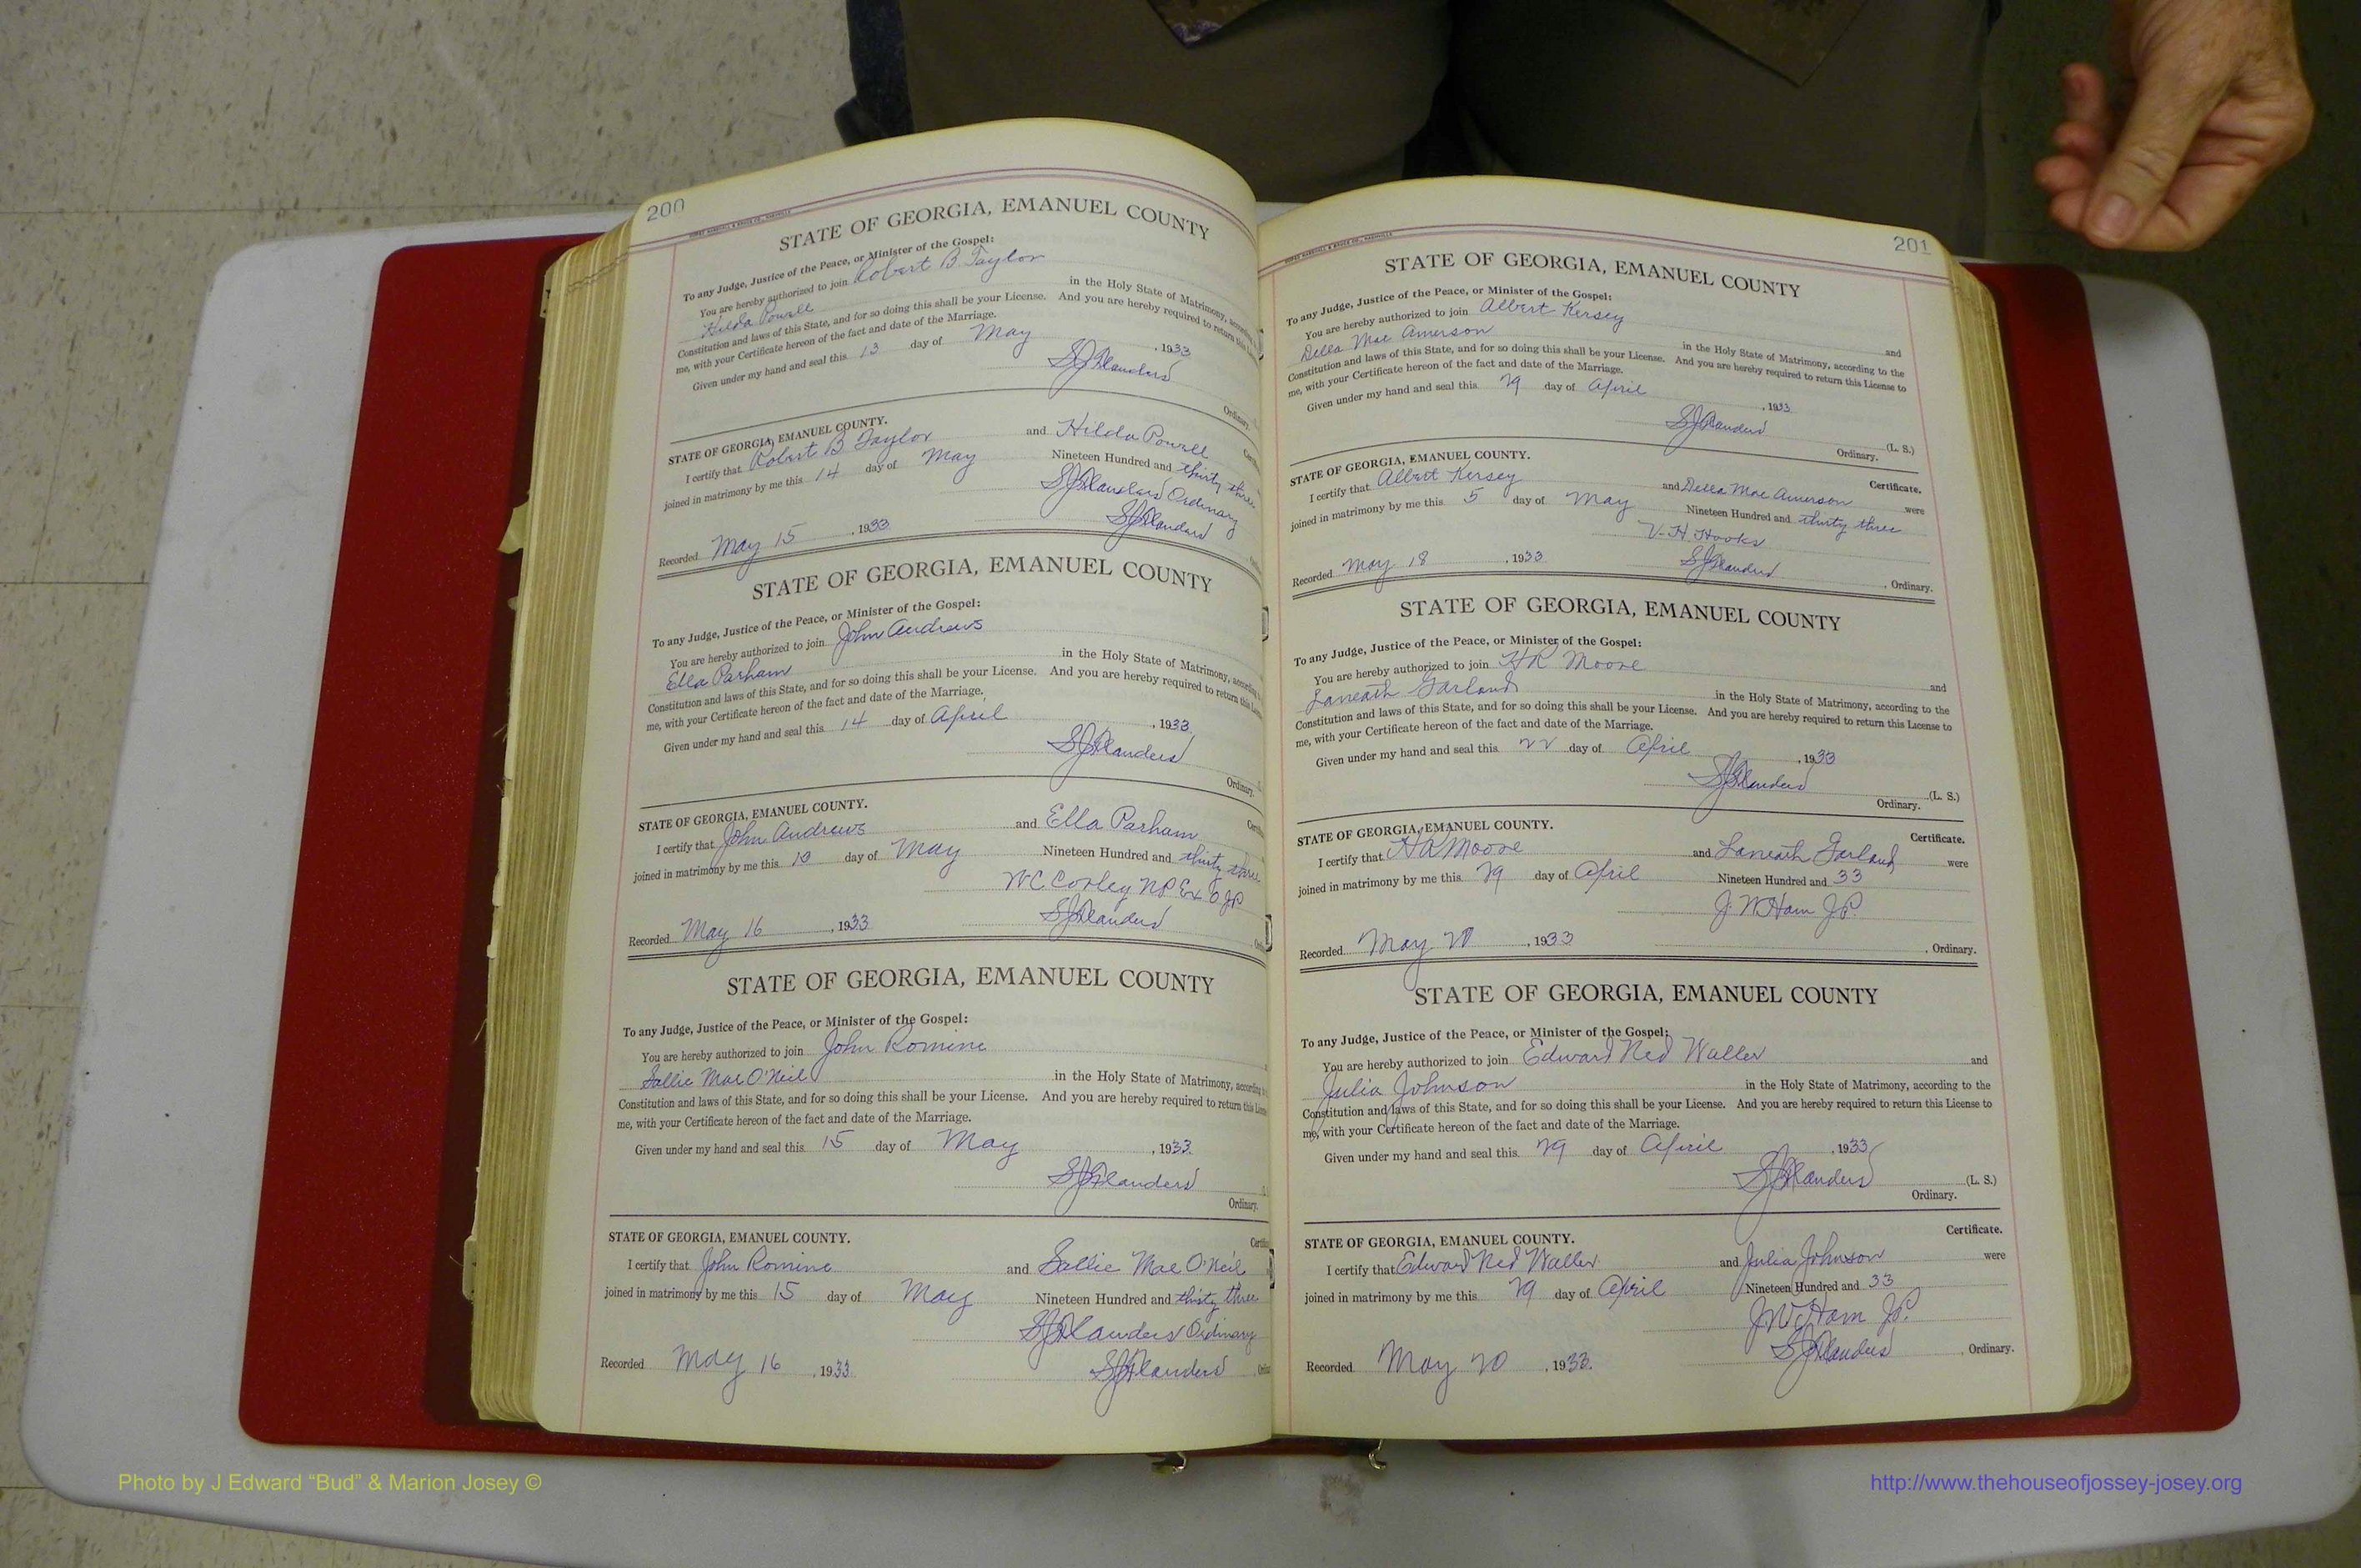 200
STATE OF GEORGIA, EMANUEL COUNTY
To any Judge, Justice of the Peace, or Minister of the Gospel:
You are hereby authorized to join Robert B Taylor
Hilda Powell in the Holy State of Matrimony, according
Constitution and laws of this State, and for so doing this shall be your License. And you are hereby required to return this
me, with your Certificate hereon of the fact and date of the Marriage.
Given under my hand and seal this 13 day of May, 1933
SJFlanders
Ordinary.
STATE OF GEORGIA, EMANUEL COUNTY.
I certify that Robert B Taylor and Hilda Powell
joined in matrimony by me this 14 day of May Nineteen Hundred and thirty three
SJFlanders Ordinary
Recorded May 15, 1933 SJFlanders
STATE OF GEORGIA, EMANUEL COUNTY
To any Judge, Justice of the Peace, or Minister of the Gospel:
You are hereby authorized to join John Andrews
Ella Parham in the Holy State of Matrimony, according
Constitution and laws of this State, and for so doing this shall be your License. And you are hereby required to return this
me, with your Certificate hereon of the fact and date of the Marriage.
Given under my hand and seal this 14 day of April, 1933
SJFlanders
Ordinary.
STATE OF GEORGIA, EMANUEL COUNTY.
I certify that John Andrews and Ella Parham
joined in matrimony by me this day of May Nineteen Hundred and thirty three
W.C. Corley NP Ex O JP
Recorded May 16, 1933 SJFlanders
STATE OF GEORGIA, EMANUEL COUNTY
To any Judge, Justice of the Peace, or Minister of the Gospel:
You are hereby authorized to join John Romine
Sallie Mae O'Neil in the Holy State of Matrimony, according
Constitution and laws of this State, and for so doing this shall be your License. And you are hereby required to return this
me, with your Certificate hereon of the fact and date of the Marriage.
Given under my hand and seal this 15 day of May, 1933
SJFlanders
Ordinary.
STATE OF GEORGIA, EMANUEL COUNTY.
I certify that John Romine and Sallie Mae O'Neil
joined in matrimony by me this 15 day of May Nineteen Hundred and thirty three
SJFlanders Ordinary
Recorded May 16, 1933 SJFlanders
201
STATE OF GEORGIA, EMANUEL COUNTY
To any Judge, Justice of the Peace, or Minister of the Gospel:
You are hereby authorized to join Albert Kersey and
Della Mae Amerson in the Holy State of Matrimony, according to the
Constitution and laws of this State, and for so doing this shall be your License. And you are hereby required to return this License to
me, with your Certificate hereon of the fact and date of the Marriage.
Given under my hand and seal this 29 day of April, 1933
SJFlanders (L. S.)
Ordinary.
STATE OF GEORGIA, EMANUEL COUNTY. Certificate.
I certify that Albert Kersey and Della Mae Amerson were
joined in matrimony by me this 5 day of May Nineteen Hundred and thirty three
V. H. Hooks
Recorded May 18, 1933 SJFlanders, Ordinary.
STATE OF GEORGIA, EMANUEL COUNTY
To any Judge, Justice of the Peace, or Minister of the Gospel:
You are hereby authorized to join HR Moore and
Laneath Garland in the Holy State of Matrimony, according to the
Constitution and laws of this State, and for so doing this shall be your License. And you are hereby required to return this License to
me, with your Certificate hereon of the fact and date of the Marriage.
Given under my hand and seal this 22 day of April, 1933
SJFlanders (L. S.)
Ordinary.
STATE OF GEORGIA, EMANUEL COUNTY. Certificate.
I certify that HR Moore and Laneath Garland were
joined in matrimony by me this 29 day of April Nineteen Hundred and 33
J. W Ham J.P.
Recorded May 20, 1933, Ordinary.
STATE OF GEORGIA, EMANUEL COUNTY
To any Judge, Justice of the Peace, or Minister of the Gospel:
You are hereby authorized to join Edward Ned Waller and
Julia Johnson in the Holy State of Matrimony, according to the
Constitution and laws of this State, and for so doing this shall be your License. And you are hereby required to return this License to
me, with your Certificate hereon of the fact and date of the Marriage.
Given under my hand and seal this 29 day of April, 1933
SJFlanders (L. S.)
Ordinary.
STATE OF GEORGIA, EMANUEL COUNTY. Certificate.
I certify that Edward Ned Waller and Julia Johnson were
joined in matrimony by me this 29 day of April Nineteen Hundred and 33
JW Ham J.P.
Recorded May 20, 1933. SJFlanders, Ordinary.
Photo by J Edward “Bud” & Marion Josey ©
http://www.thehouseofjossey-josey.org